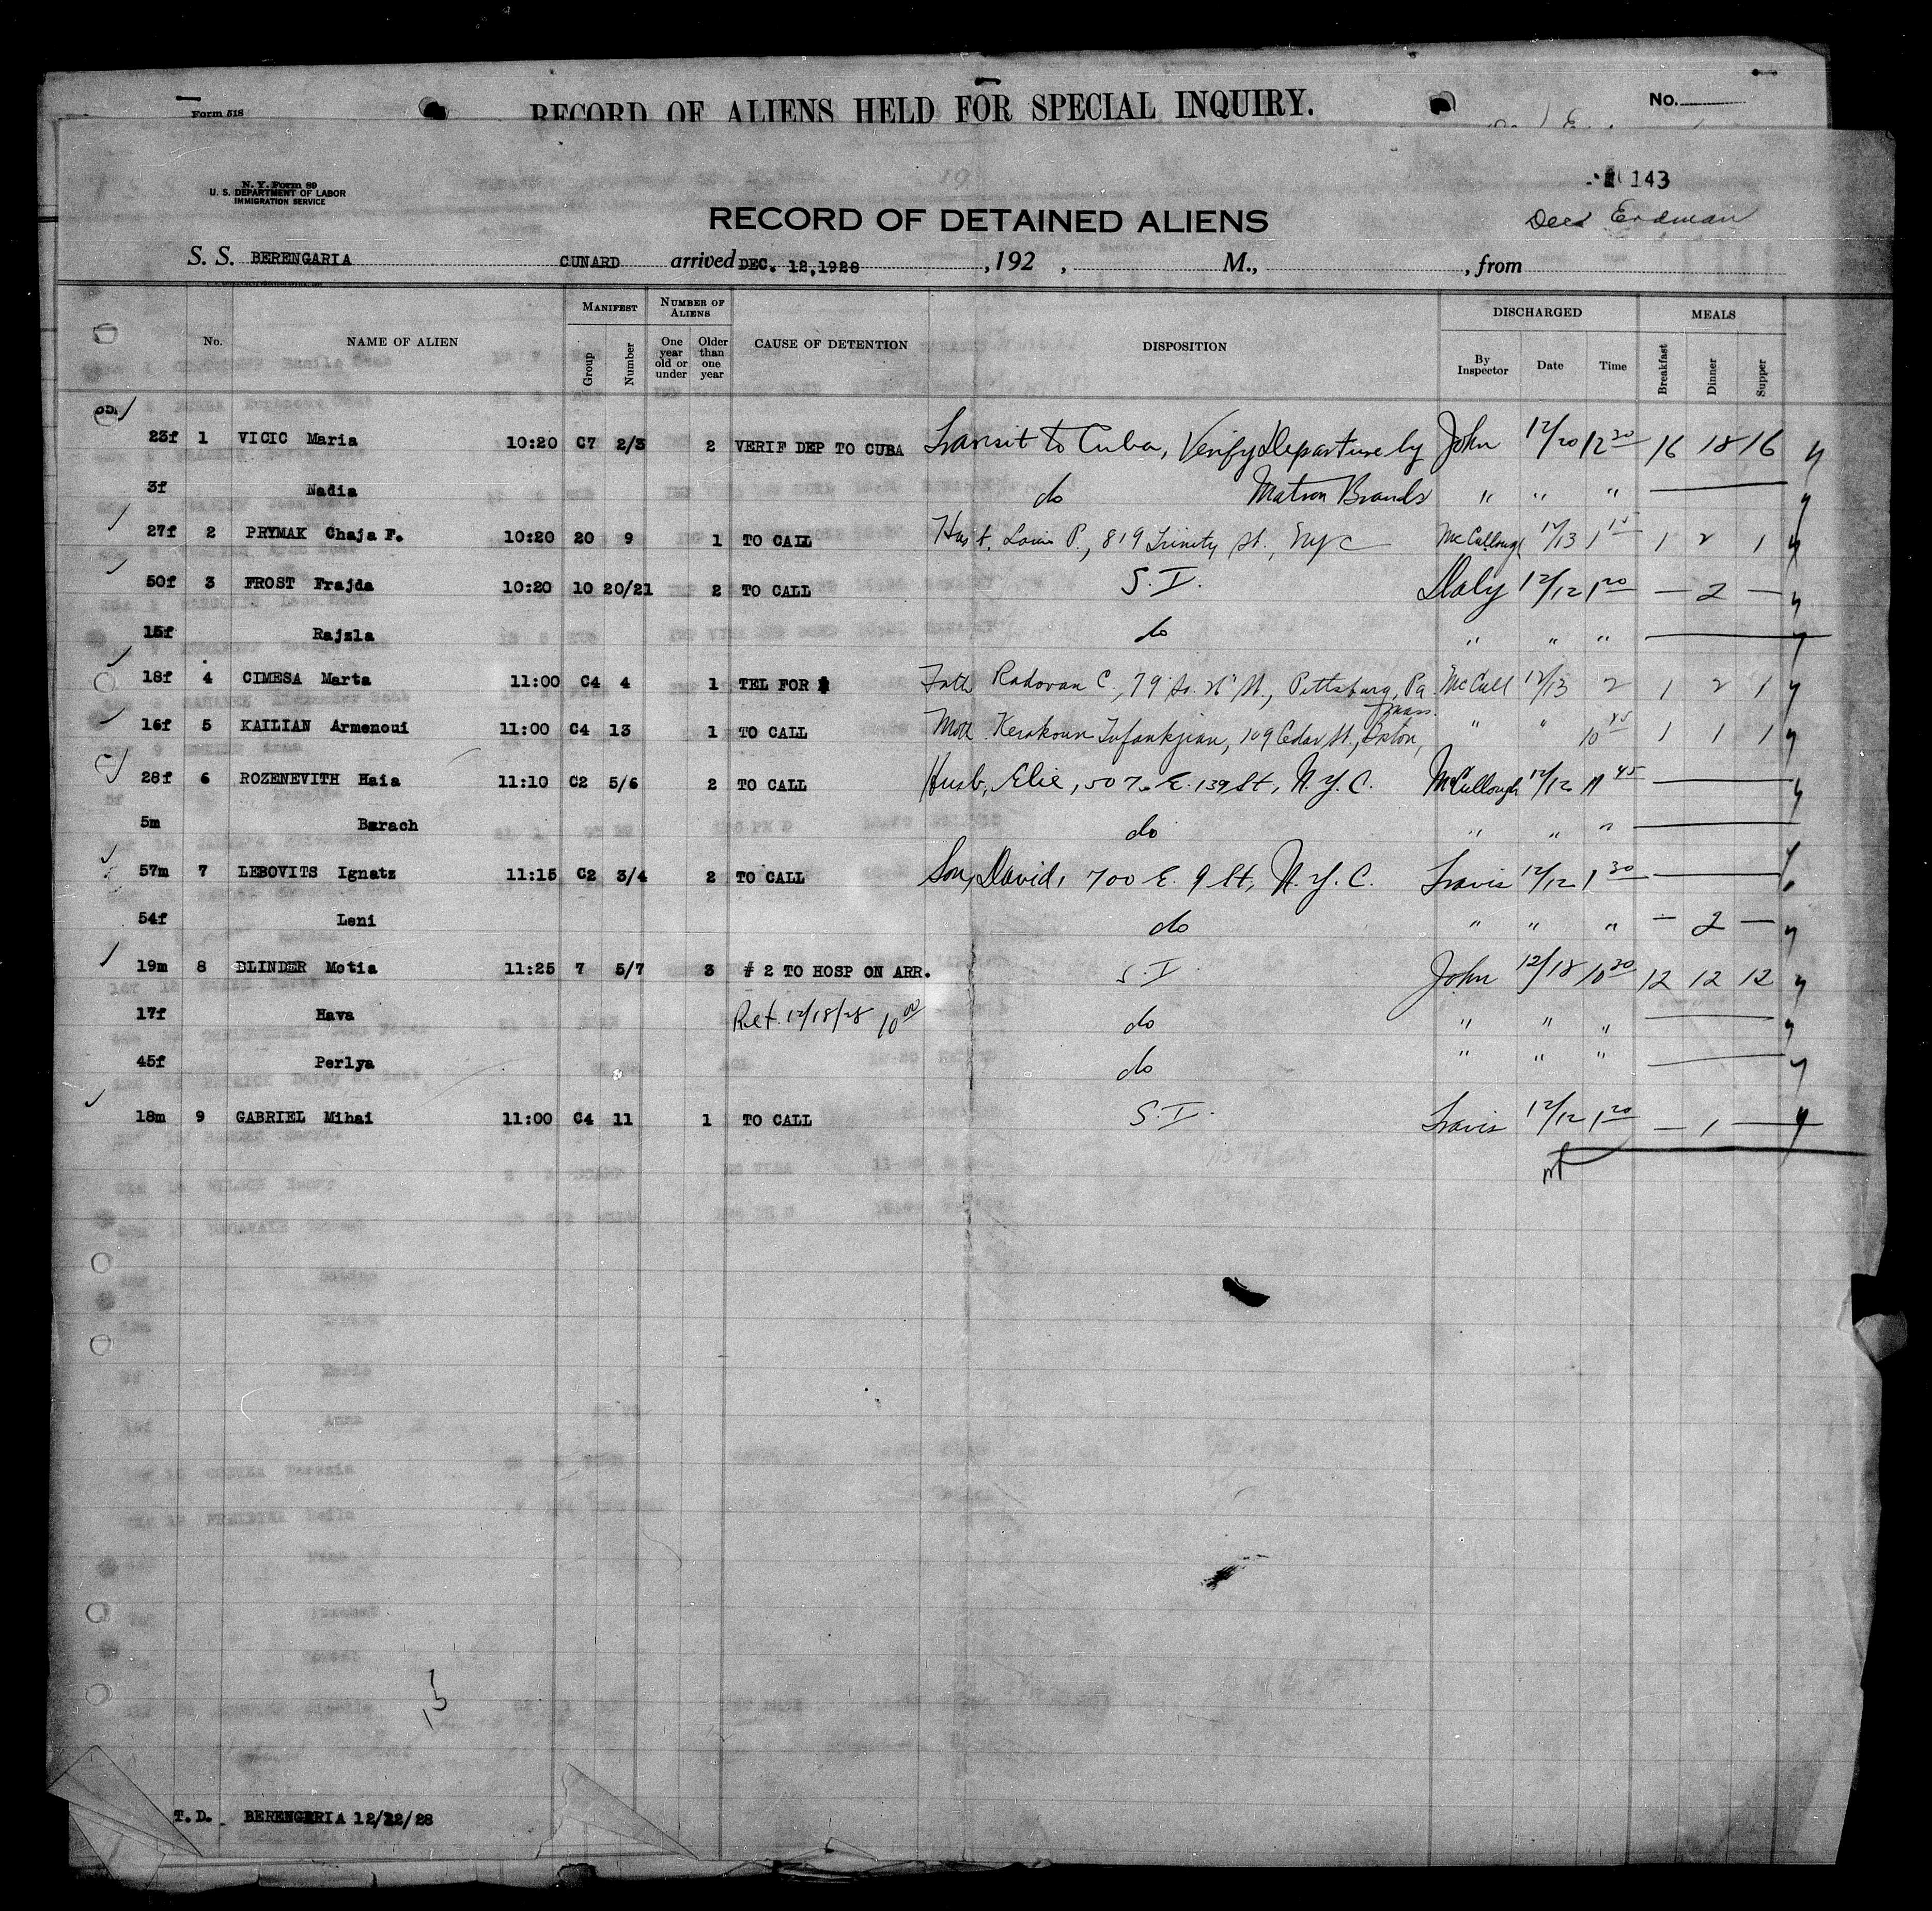 Form 518
RECORD OF ALIENS HELD FOR SPECIAL INQUIRY.
No.
N. Y. Form 89
U. S. DEPARTMENT OF LABOR
IMMIGRATION SERVICE
143
RECORD OF DETAINED ALIENS
Erdman
S. S. BERENGARIA CUNARD arrived DEC. 12,1928 , 192 , M., , from
MANIFEST NUMBER OF ALIENS DISCHARGED MEALS
No. NAME OF ALIEN Group Number One year old or under Older than one year CAUSE OF DETENTION DISPOSITION By Inspector Date Time Breakfast Dinner Supper
23f 1 VICIC Maria 10:20 C7 2/3 2 VERIF DEP TO CUBA Transit to Cuba, Verify Departure by John 12/20 12 20 16 18 16 y
3f Nadia do Matron Brands " " " y
27f 2 PRYMAK Chaja F. 10:20 20 9 1 TO CALL Louis P., 819 Trinity St., NYC McCullough 12/13 1 15 1 2 1 y
50f 3 FROST Frajda 10:20 10 20/21 2 TO CALL S. I. Daly 12/12 1 20 — 2 — y
15f Rajzla do " " " y
18f 4 CIMESA Marta 11:00 C4 4 1 TEL FOR Fath Radovan C., 79 So. 26" St., Pittsburg, Pa McCull 12/13 2 1 2 1 y
16f 5 KAILIAN Armenoui 11:00 C4 13 1 TO CALL Moth Kerakoun Tufankjian, 109 Cedar St., Boston, Mass. " " 10 45 1 1 1 y
28f 6 ROZENEVITH Haia 11:10 C2 5/6 2 TO CALL Husb, Elie, 507 E. 139 St, N. Y. C. McCullough 12/12 11 45 y
5m Barach do " " " y
57m 7 LEBOVITS Ignatz 11:15 C2 3/4 2 TO CALL Son, David, 700 E. 9 St, N. Y. C. Travis 12/12 1 30 y
54f Leni do " " " — 2 — y
19m 8 BLINDER Motia 11:25 7 5/7 3 # 2 TO HOSP ON ARR. S. I. John 12/18 10 30 12 12 12 y
17f Hava Ret. 12/18/28 10 00 do " " " y
45f Perlya do " " " y
18m 9 GABRIEL Mihai 11:00 C4 11 1 TO CALL S. I. Travis 12/12 1 20 — 1 — y
T.D. BERENGARIA 12/12/28